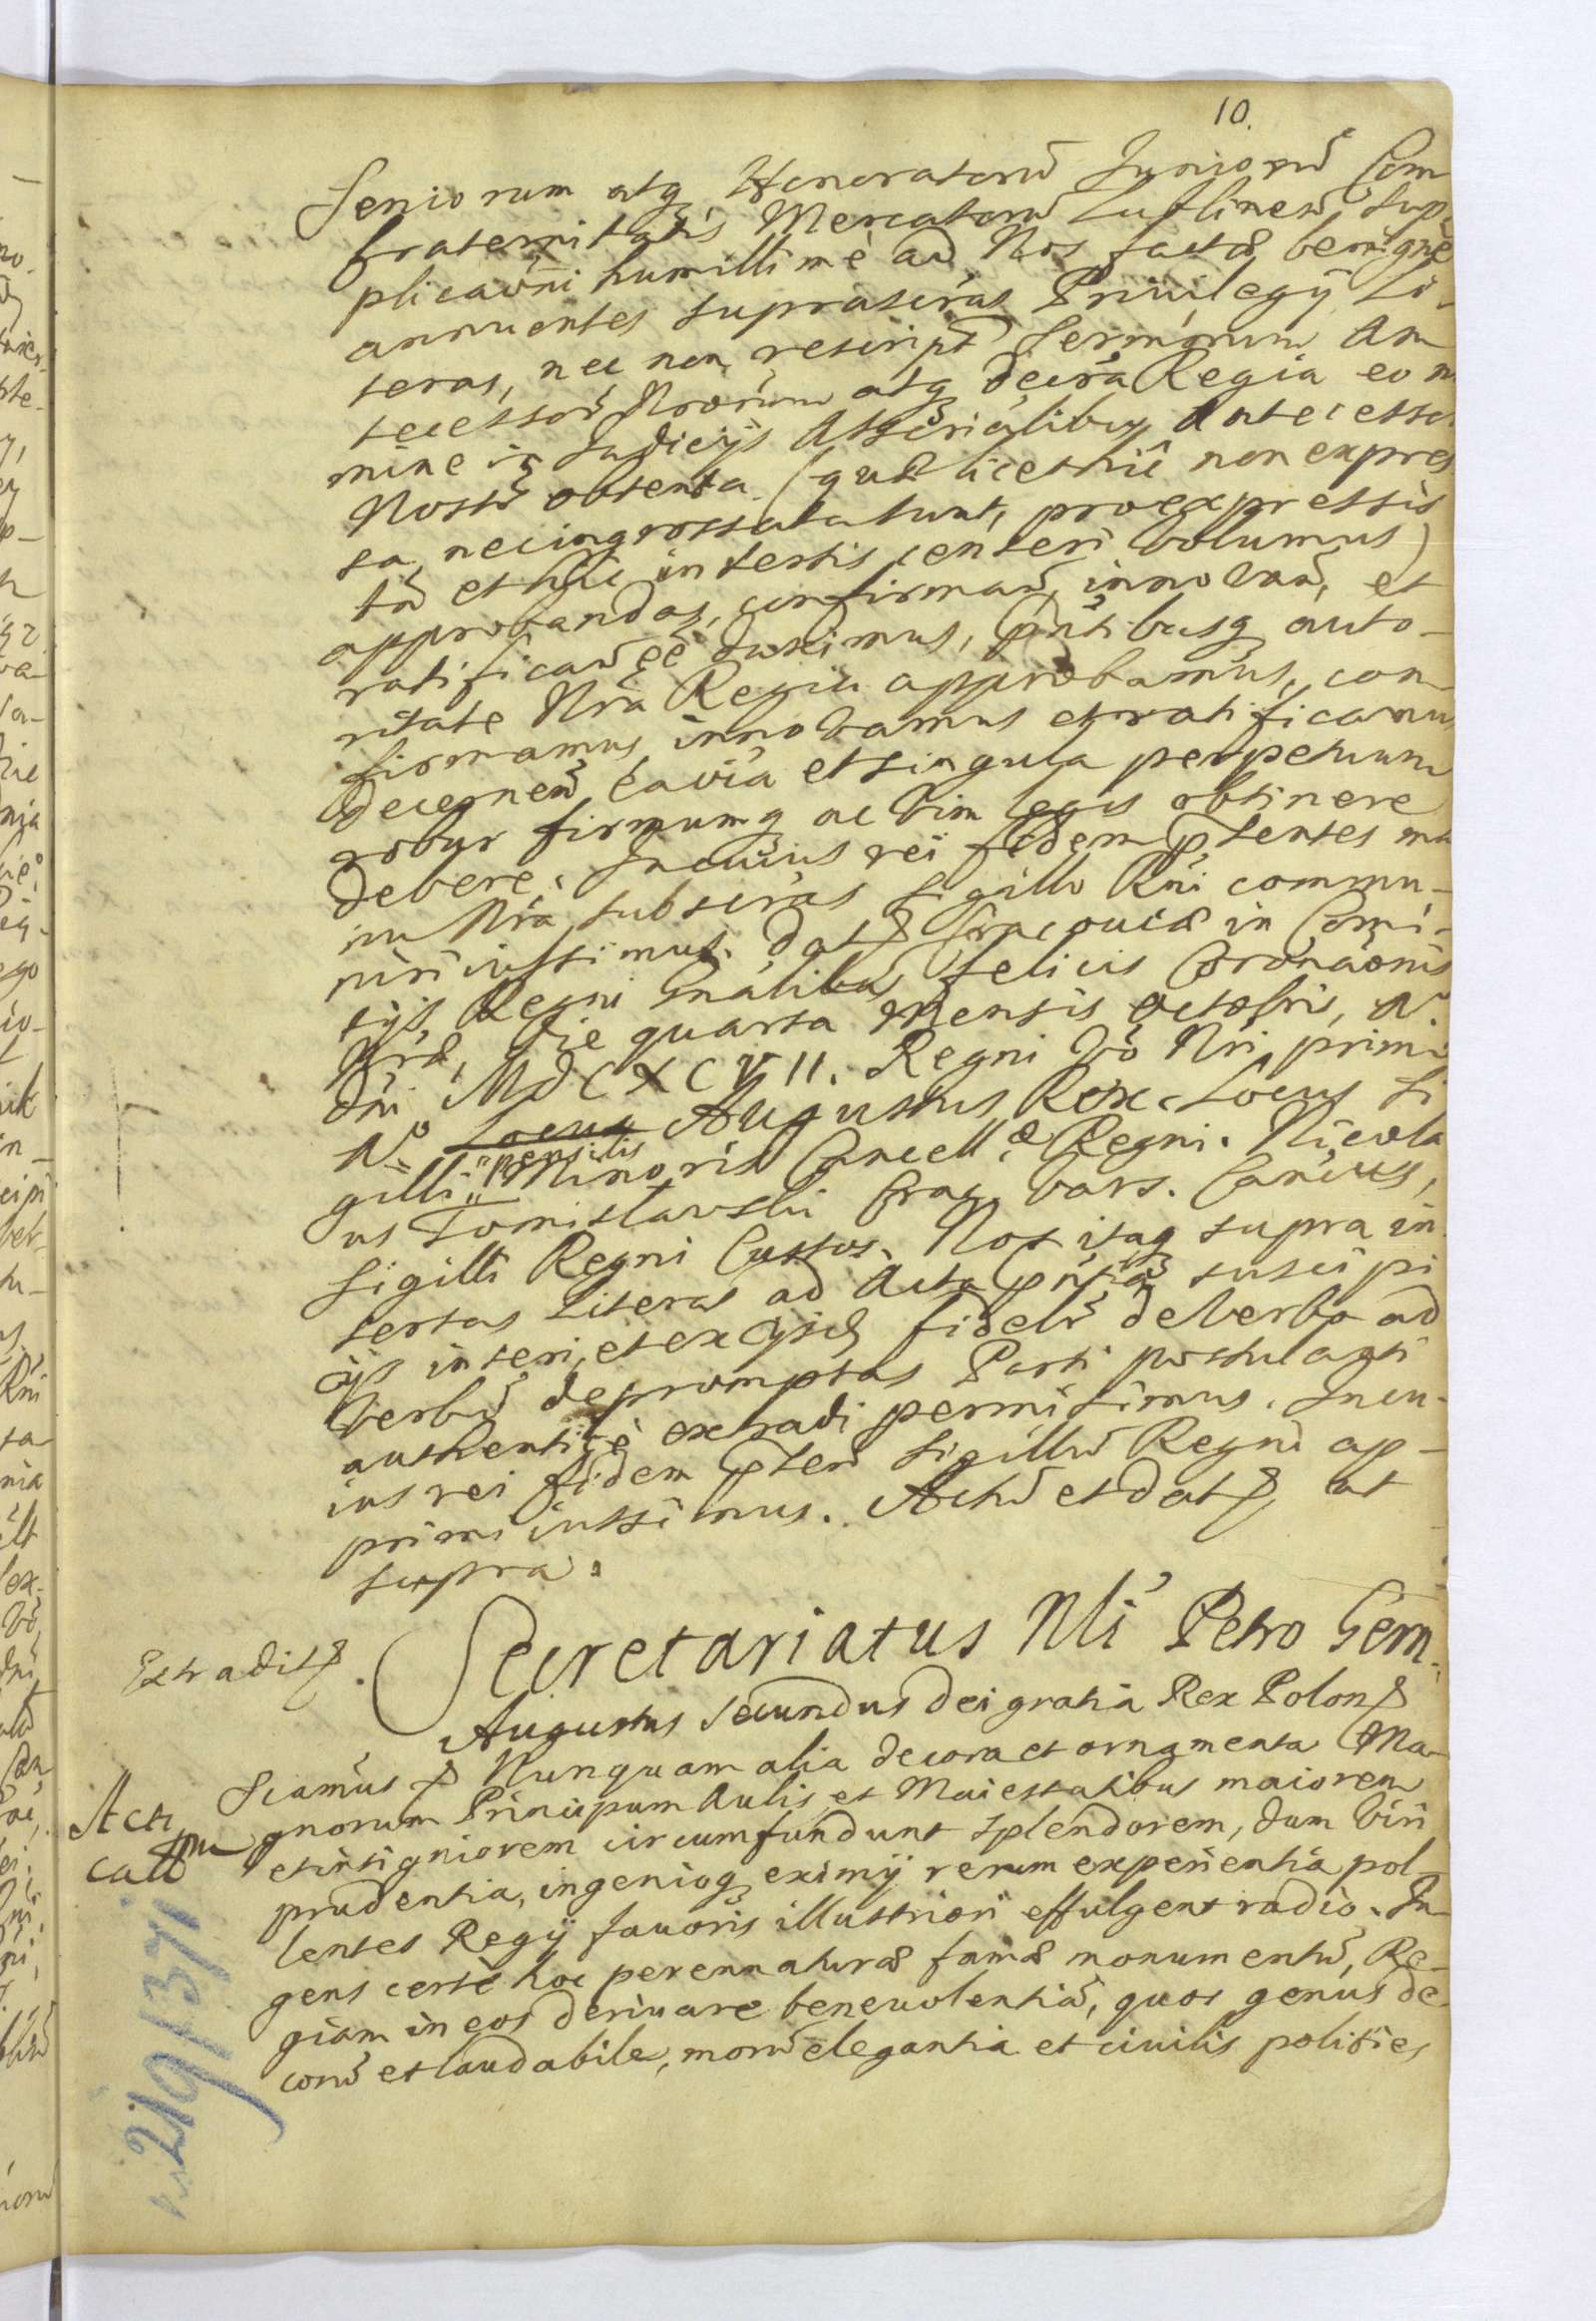 10.
Seniorum atq Honoratorũ Juniorũ Con
fraternitatis Mercatorũ Lublineñ, Sup=
plicaõni humillimè ad Nos factæ benignè
annuentes suprascr̃as Privilegÿ Li-
teras, nec non rescripta Serm̃orum An
tecessorũ Nr̃orum atq decr̃a Regia eo no
mine in Judicÿs Assr̃ialibus Antecesso
Nostr̃ obtenta (quæ licet hîc non expres
sa, nec ingrossata sunt, pro expressis
tñ et hîc insertis censeri volumus)
approbandas, confirmañ, innovañ, et
ratificañ eẽ duximus, pñtibusq auto-
ritate Nr̃a Regia approbamus, con
firmamus, innovamus et ratificamus
decerneñ, eavia et singula perpetuum
robur firmumq ac vim legis obtinere
debere. In cuius rei fidem pñtes manu
nu Nr̃a subscr̃as Sigillo Rñi commu-
niri iussimus. dat Cracoviæ in Comi-
tÿs Regni Gñalibus felicis Coronaõnis
Nr̃æ, die quarta mensis octobris, A.
dñi MDCXCVII. Regni vò Nri primi
Aº Locus Augustus Rex. Locus Si
gilli pensilis Minoris Cancell: Regni. Nicola
us Tomislavski Crac. Vars. Canious,
Sigilli Regni Custos. Nos itaq supra in
sertas Literas ad Acta pñtia suscipi
ÿs inseri, et ex ÿsd fideli de verbo ad
verbũ depromptas Parti postulanti
authenticè extradi permisimus. In cu-
ius rei fidem pñteñ Sigillũ Regni ap-
primi iussimus. Actũ et dat, ut
supra.
Extradit.
Secretariatus Nli Petro Gem.
Augustus Secundus dei gratia Rex Polon
Sciamus Nunquam alia decora et ornamenta Ma-
gnorum Principum Aulis et Maiestatibus maiorem
et insigniorem circumfundunt splendorem, dum Viri
prudentia, ingenioq eximÿ rerum experientia pol-
lentes Regÿ favoris illustriori effulgent radio. In
gens certè hoc perennaturæ famæ monumentũ, Re-
giam in eos derivare benevolentiã, quos genus de
corũ et laudabile, morũ elegantia et civilis polities
219/1371